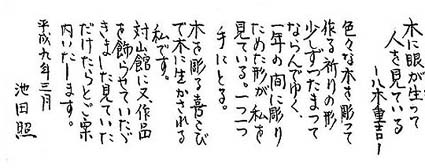 木に眼が生って
人を見ている
―八木重吉―
色々な木を彫って
作る祈りの形
少しずつたまって
ならんでゆく、
一年の間に彫り
ためた形が私を
見ている。一つ一つ
手にとる。
木を彫る喜こび
で木に生かされる
私です。
対山館に又、作品
を飾らせていたゞ
きました見ていた
だけたらとご案
内いたします。
平成九年三月
池田照